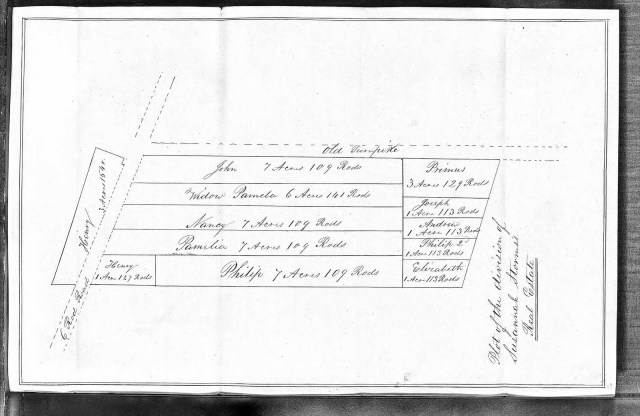 Old Turnpike
John 7 Acres 109 Rods
Widow Pamela 6 Acres 141 Rods
Nancy 7 Acres 109 Rods
Pamilia 7 Acres 109 Rods
Philip 7 Acres 109 Rods
Primus
3 Acres 129 Rods
Joseph
1 Acre 113 Rods
Andrew
1 Acre 113 Rods
Philip 2
1 Acre 113 Rods
Elizabeth
1 Acre 113 Rods
Henry
3 Acres
Henry
1 Acre 127 Rods
Road
Plot of the division of
Susannah Storms
Real Estate